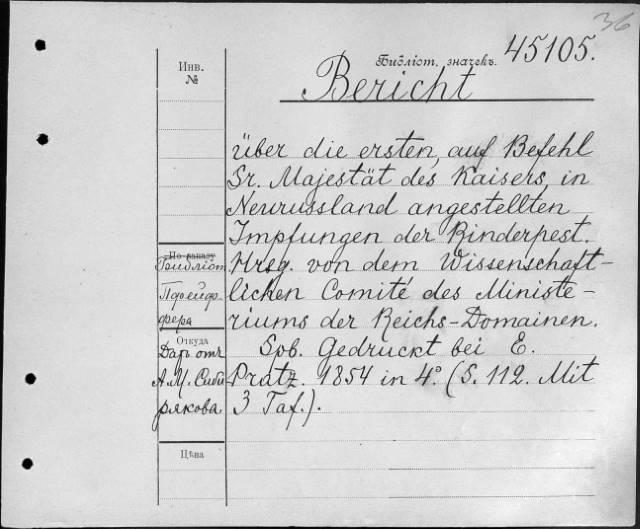 36
Инв.
№
Библіот. значекъ. 45105.
Bericht
über die ersten, auf Befehl
Sr. Majestät des Kaisers, in
Neurussland angestellten
Impfungen der Rinderpest.
Hrsg. von dem Wissenschaft-
lichen Comité des Ministe-
riums der Reichs-Domainen.
Spb. Gedruckt bei E.
Pratz. 1854 in 4°. (S. 112. Mit
3 Taf.).
Библіот.
Пфейф-
фера
Откуда
Даръ отъ
А. М. Сиби
рякова
Цѣна